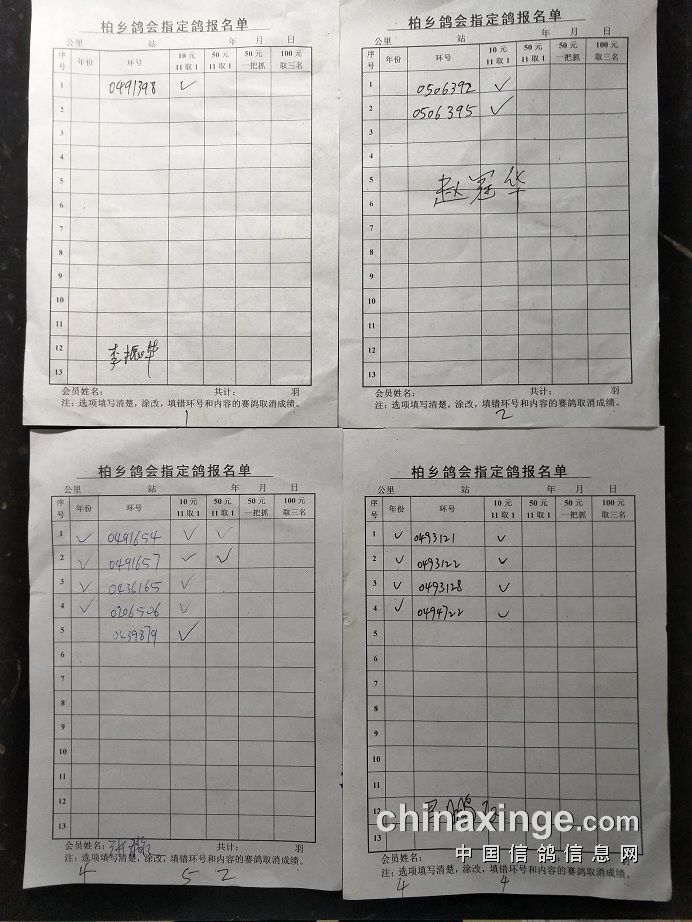 柏乡鸽会指定鸽报名单
公里 站 年 月 日
序号 年份 环号 10元 11取1 50元 11取1 50元 一把抓 100元 取三名
1 0491398 ✓
2
3
4
5
6
7
8
9
10
11
12
13
李振华
会员姓名： 共计： 羽
注：选项填写清楚，涂改，填错环号和内容的赛鸽取消成绩。
1
柏乡鸽会指定鸽报名单
公里 站 年 月 日
序号 年份 环号 10元 11取1 50元 11取1 50元 一把抓 100元 取三名
1 0506392 ✓
2 0506395 ✓
3
4
5
赵冠华
6
7
8
9
10
11
12
13
会员姓名： 共计： 羽
注：选项填写清楚，涂改，填错环号和内容的赛鸽取消成绩。
2
柏乡鸽会指定鸽报名单
公里 站 年 月 日
序号 年份 环号 10元 11取1 50元 11取1 50元 一把抓 100元 取三名
1 ✓ 0491654 ✓ ✓
2 ✓ 0491657 ✓ ✓
3 ✓ 0436165 ✓
4 ✓ 0206506 ✓
5 0439879 ✓
6
7
8
9
10
11
12
13
会员姓名： 共计： 羽
注：选项填写清楚，涂改，填错环号和内容的赛鸽取消成绩。
4 5 2
柏乡鸽会指定鸽报名单
公里 站 年 月 日
序号 年份 环号 10元 11取1 50元 11取1 50元 一把抓 100元 取三名
1 ✓ 0493121 ✓
2 ✓ 0493122 ✓
3 ✓ 0493128 ✓
4 ✓ 0494722 ✓
5
6
7
8
9
10
11
12
13
会员姓名：
注：选项填写清楚，涂改，填错环号和内容的赛鸽取消成绩。
4 4
chinaxinge.com
中国信鸽信息网